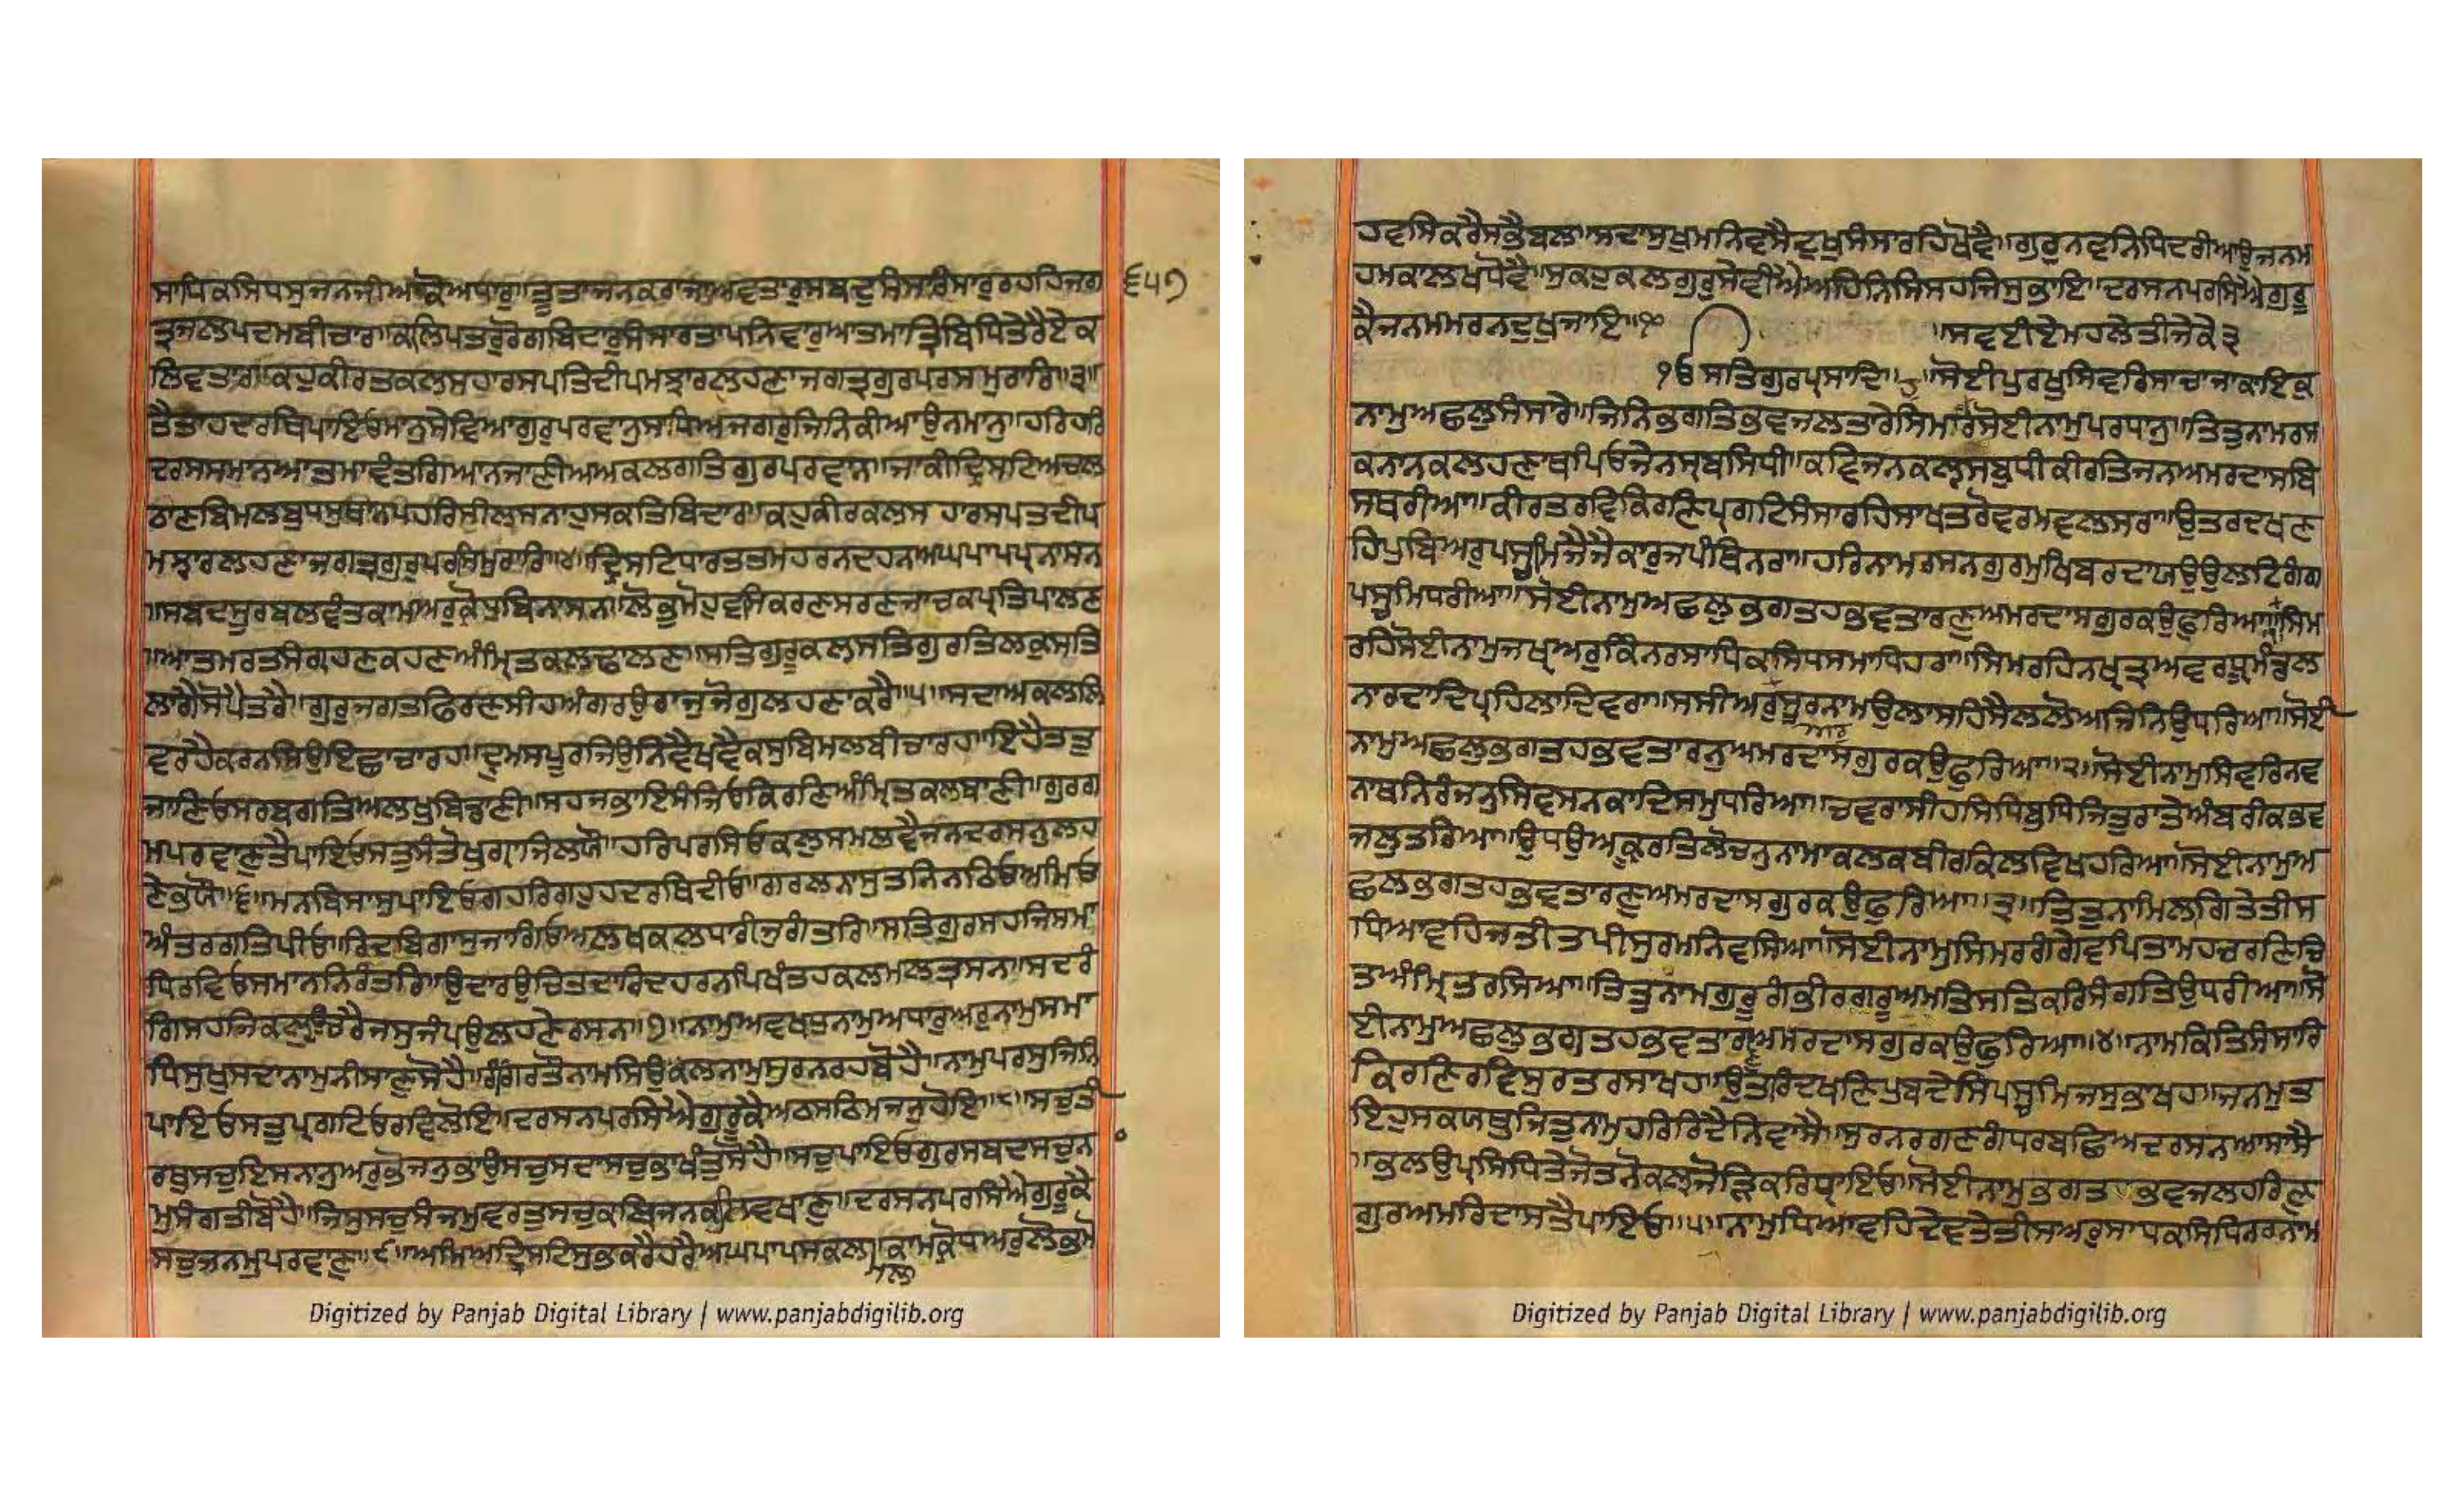 ਸਾਧਿਕਸਿਧਸੁਜਨਜੀਅਕੋਅਧਾਰੁ॥ਤੂਤਾਜਨਕਰਾਜਾਅਵਤਾਰੁਸਬਦੁਸੰਸਾਰਿਸਾਰੁਰਹਹਿਜਗ ੬੫੭
ਤ੍ਰਜਲਪਦਮਬੀਚਾਰ॥ਕਲਿਪਤਰੁਰੋਗਬਿਦਾਰੁਸੰਸਾਰਤਾਪਨਿਵਾਰੁਆਤਮਾਤ੍ਰਿਬਿਧਿਤੇਰੈਏਕ
ਲਿਵਤਾਰ॥ਕਹੁਕੀਰਤਕਲਸਹਾਰਸਪਤਿਦੀਪਮਝਾਰਲਹਣਾਜਗਤ੍ਰਗੁਰਪਰਸਮੁਰਾਰਿ॥੩॥
ਤੈਤਾਹਦਰਬਿਪਾਇਓਮਾਨੁਸੇਵਿਆਗੁਰੁਪਰਵਾਨੁਸਾਧਿਅਜਗਰੁਜਿਨਿਕੀਆਉਨਮਾਨੁ॥ਹਰਿਹਰਿ
ਦਰਸਸਮਾਨਆਤਮਾਵੰਤਗਿਆਨਜਾਣੀਅਅਕਲਗਤਿਗੁਰਪਰਵਾਨ॥ਜਾਕੀਦ੍ਰਿਸਟਿਅਚਲ
ਠਾਣਬਿਮਲਬੁਧਸੁਥਾਨਪਹਰਿਸੀਲੁਸਨਾਹੁਸਕਤਿਬਿਦਾਰ॥ਕਹੁਕੀਰਕਲਸ ਹਾਰਸਪਤਦੀਪ
ਮਝਾਰਲਹਣਾਜਗਤ੍ਰਗੁਰੁਪਰਸਿਮੁਰਾਰਿ॥੪॥ਦ੍ਰਿਸਟਿਧਾਰਤਤਮਹਰਨਦਹਨਅਘਪਾਪਪ੍ਰਨਾਸਨ
॥ਸਬਦਸੂਰਬਲਵੰਤਕਾਮਅਰੁਕ੍ਰੋਧਬਿਨਾਸਨ॥ਲੋਭੁਮੋਹੁਵਸਿਕਰਣਸਰਣਜਾਚਕਪ੍ਰਤਿਪਾਲਣ
॥ਆਤਮਰਤਸੰਗ੍ਰਹਣਕਹਣਅੰਮ੍ਰਿਤਕਲਢਾਲਣ॥ਸਤਿਗੁਰੂਕਲਸਤਿਗੁਰਤਿਲਕੁਸਤਿ
ਲਾਗੈਸੋਪੈਤਰੈ॥ਗੁਰੁਜਗਤਫਿਰਣਸੀਹਅੰਗਰਉਰਾਜੁਜੋਗੁਲਹਣਾਕਰੈ॥੫॥ਸਦਾਅਕਲਲਿ
ਵਰਹੈਕਰਨਸਿਉਇਛਾਚਾਰਹ॥ਦ੍ਰੁਮਸਪੂਰਜਿਉਨਿਵੈਖਵੈਕਸੁਬਿਮਲਬੀਚਾਰਹ॥ਇਹੈਤਤੁ
ਜਾਣਿਓਸਰਬਗਤਿਅਲਖੁਬਿਡਾਣੀ॥ਸਹਜਭਾਇਸੰਚਿਓਕਿਰਣਿਅੰਮ੍ਰਿਤਕਲਬਾਣੀ॥ਗੁਰਗ
ਮਪਰਵਾਣੁਤੈਪਾਇਓਸਤੁਸੰਤੋਖੁਗ੍ਰਾਹਜਿਲਯੌ॥ਹਰਿਪਰਸਿਓਕਲੁਸਮਲਵੈਜਨਦਰਸਨੁਲਹ
ਣੇਭਯੌ॥੬॥ਮਨਬਿਸਾਸੁਪਾਇਓਗਹਰਿਗਹੁਹਦਰਥਿਦੀਓ॥ਗਰਲਨਾਸੁਤਨਿਨਠਿਓਅਮਿਓ
ਅੰਤਰਗਤਿਪੀਓ॥ਰਿਦਬਿਗਾਸੁਜਾਗਿਓਅਲਖਕਲਧਾਰੀਜੁਗੰਤਰਿ॥ਸਤਿਗੁਰਸਹਜਿਸਮਾ
ਧਿਰਵਿਓਸਮਾਨਨਿਰੰਤਰਿ॥ਉਦਾਰਉਚਿਤਦਾਰਿਦਹਰਨਪਿਖੰਤਹਕਲਮਲਤ੍ਰਸਨ॥ਸਦਰੰ
ਗਿਸਹਜਿਕਲੁਉਚਰੈਜਸੁਜੰਪਉਲਹਣੇਰਸਨ॥੭॥ਨਾਮੁਅਵਖਧੁਨਾਮੁਅਧਾਰੁਅਰੁਨਾਮੁਸਮਾ
ਧਿਸੁਖੁਸਦਾਨਾਮੁਨੀਸਾਣੁਸੋਹੈ॥ਰੰਗਿਰਤੌਨਾਮਸਿਉਕਲਨਾਮੁਸੁਰਨਰਹਬੋਹੈ॥ਨਾਮੁਪਰਸੁਜਿਨਿ
ਪਾਇਓਸਤੁਪ੍ਰਗਟਿਓਰਵਿਲੋਇ॥ਦਰਸਨਪਰਸਿਐਗੁਰੂਕੈਅਠਸਠਿਮਜਨੁਹੋਇ॥੮॥ਸਚੁਤੀ
ਰਥੁਸਚੁਇਸਨਾਨੁਅਰੁਭੋਜਨੁਭਾਉਸਚੁਸਦਾਸਚੁਭਾਖੰਤੁਸੋਹੈ॥ਸਚੁਪਾਇਓਗੁਰਸਬਦਸਚੁਨਾ
ਮੁਸੰਗਤੀਬੋਹੈ॥ਜਿਸੁਸਚੁਸੰਜਮੁਵਰਤੁਸਚੁਕਬਿਜਨਕਲਵਖਾਣੁ॥ਦਰਸਨਪਰਸਿਐਗੁਰੂਕੈ
ਸਚੁਜਨਮੁਪਰਵਾਣੁ॥੯॥ਅਮਿਅਦ੍ਰਿਸਟਿਸੁਭਕਰੈਹਰੈਅਘਪਾਪਸਕਲ॥ਕਾਮਕ੍ਰੋਧਅਰੁਲੋਭੁਮੋ
ਮਲ
ਹਵਸਿਕਰੈਸਭੈਬਲ॥ਸਦਾਸੁਖੁਮਨਿਵਸੈਦੁਖੁਸੰਸਾਰਹਿਖੋਵੈ॥ਗੁਰੁਨਵਨਿਧਿਦਰੀਆਉਜਨਮ
ਹਮਕਾਲਖਧੋਵੈ॥ਸੁਕਹੁਕਲਗੁਰੁਸੇਵੀਐਅਹਿਨਿਸਿਸਹਜਿਸੁਭਾਇ॥ਦਰਸਨਪਰਸਿਐਗੁਰੂ
ਕੈਜਨਮਮਰਨਦੁਖੁਜਾਇ॥੧੦ ॥ਸਵਈਏਮਹਲੇਤੀਜੇਕੇ੩
੧ਓਸਤਿਗੁਰਪ੍ਰਸਾਦਿ॥ ॥ਸੋਈਪੁਰਖੁਸਿਵਰਿਸਾਚਾਜਾਕਾਇਕੁ
ਨਾਮੁਅਛਲੁਸੰਸਾਰੇ॥ਜਿਨਿਭਗਤਿਭਵਜਲਤਾਰੇਸਿਮਰਿਸੋਈਨਾਮੁਪਰਧਾਨੁ॥ਤਿਤੁਨਾਮਰਸਿ
ਕਨਾਨਕਲਹਣਾਥਪਿਓਜੇਨਸ੍ਰਬਸਿਧੀ॥ਕਵਿਜਨਕਲ੍ਯਸਬੁਧੀਕੀਰਤਿਜਨਅਮਰਦਾਸਬਿ
ਸਥਰੀਆ॥ਕੀਰਤਰਵਿਕਿਰਣਿਪ੍ਰਗਟਿਸੰਸਾਰਹਿਸਾਖਤਰੋਵਰਮਵਲਸਰਾ॥ਉਤਰਦਖਣ
ਹਿਪੁਬਿਅਰੁਪਸ੍ਚਮਿਜੈਜੈਕਾਰੁਜਪੰਥਿਨਰਾ॥ਹਰਿਨਾਮਰਸਨਗੁਰਮੁਖਿਬਰਦਾਯਉਉਲਟਿਗੰਗ
ਪਸ੍ਚਮਿਧਰੀਆ॥ਸੋਈਨਾਮੁਅਛਲੁਭਗਤਹਭਵਤਾਰਣੁਅਮਰਦਾਸਗੁਰਕਉਫੁਰਿਆ॥੧॥ਸਿਮ
ਰਹਿਸੋਈਨਾਮੁਜਖ੍ਯਅਰੁਕਿੰਨਰਸਾਧਿਕਸਿਧਸਮਾਧਿਹਰਾ॥ਸਿਮਰਹਿਨਖ੍ਯਤ੍ਰਅਵਰਧ੍ਰੂਮੰਡਲ
ਨਾਰਦਾਦਿਪ੍ਰਹਿਲਾਦਿਵਰਾ॥ਸਸੀਅਰੁਸੂਰਨਾਮਉਲਾਸਹਿਸੈਲਲੋਅਜਿਨਿਉਧਰਿਆ॥ਸੋਈ
ਨਾਮੁਅਛਲੁਭਗਤਹਭਵਤਾਰਨੁਅਮਰਦਾਸਗੁਰਕਉਫੁਰਿਆ॥੨॥ਸੋਈਨਾਮੁਸਿਵਰਿਨਵ
ਨਾਥਨਿਰੰਜਨੁਸਿਵਸਨਕਾਦਿਸਮੁਧਰਿਆ॥ਚਵਰਾਸੀਹਸਿਧਿਬੁਧਿਜਿਤੁਰਾਤੇਅੰਬਰੀਕਭਵ
ਜਲੁਤਰਿਆ॥ਉਧਉਅਕ੍ਰੂਰਤਿਲੋਚਨੁਨਾਮਾਕਲਕਬੀਰਕਿਲਵਿਖਹਰਿਆ॥ਸੋਈਨਾਮੁਅ
ਛਲਭਗਤਹਭਵਤਾਰਣੁਅਮਰਦਾਸਗੁਰਕਉਫੁਰਿਆ॥੩॥ਤਿਤੁਨਾਮਿਲਾਗਿਤੇਤੀਸ
ਧਿਆਵਹਿਜਤੀਤਪੀਸੁਰਮਨਿਵਸਿਆ॥ਸੋਈਨਾਮੁਸਿਮਰਗੰਗੇਵਪਿਤਾਮਹਚਰਣਿਚਿ
ਤਅੰਮ੍ਰਿਤਰਸਿਆ॥ਤਿਤੁਨਾਮਗੁਰੂਗੰਭੀਰਗਰੂਅਮਤਿਸਤਿਕਰਿਸੰਗਤਿਉਧਰੀਆ॥ਸੋ
ਈਨਾਮੁਅਛਲੁਭਗਤਹਭਵਤਾਰਣੁਅਮਰਦਾਸਗੁਰਕਉਫੁਰਿਆ॥੪॥ਨਾਮਕਿਤਿਸੰਸਾਰਿ
ਕਿਰਣਿਰਵਿਸੁਰਤਰਸਾਖਹ॥ਉਤਰਿਦਖਣਿਪੁਬਦੇਸਿਪਸ੍ਚਮਿਜਸੁਭਾਖਹ॥ਜਨਮੁਤ
ਇਹੁਸਕਯਥੁਜਿਤੁਨਾਮੁਹਰਿਰਿਦੈਨਿਵਾਸੈ॥ਸੁਰਨਰਗਣਗੰਧਰਬਛਿਅਦਰਸਨਆਸਾਸੈ
॥ਭਲਉਪ੍ਰਸਿਧਿਤੇਜੋਤਨੋਕਲ੍ਯਜੋੜਿਕਰਿਧ੍ਯਾਇਓ॥ਸੋਈਨਾਮੁਭਗਤ ਭਵਜਲਹਰਿਣ
ਗੁਰਅਮਰਿਦਾਸਤੈਪਾਇਓ॥੫॥ਨਾਮੁਧਿਆਵਹਿਦੇਵਤੇਤੀਸਅਰੁਸਾਧਕਸਿਧਿਨਰਨਾਮ
Digitized by Panjab Digital Library | www.panjabdigilib.org
Digitized by Panjab Digital Library | www.panjabdigilib.org